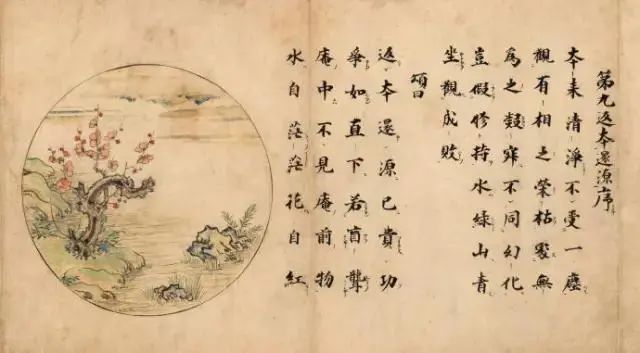 第九返本還源序
本来清淨不受一塵
觀有相之榮枯處無
爲之凝寂不同幻化
豈假修持水綠山青
坐觀成敗
頌曰
返本還源已費功
爭如直下若盲聾
庵中不見庵前物
水自茫茫花自紅